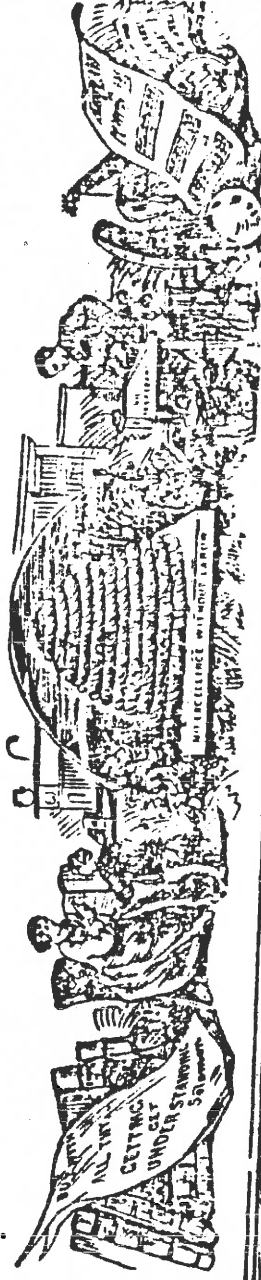 BUT WITH
ALL THY
GETTING
GET
UNDERSTANDING
Solomon
NO EXCELLENCE WITHOUT LABOR